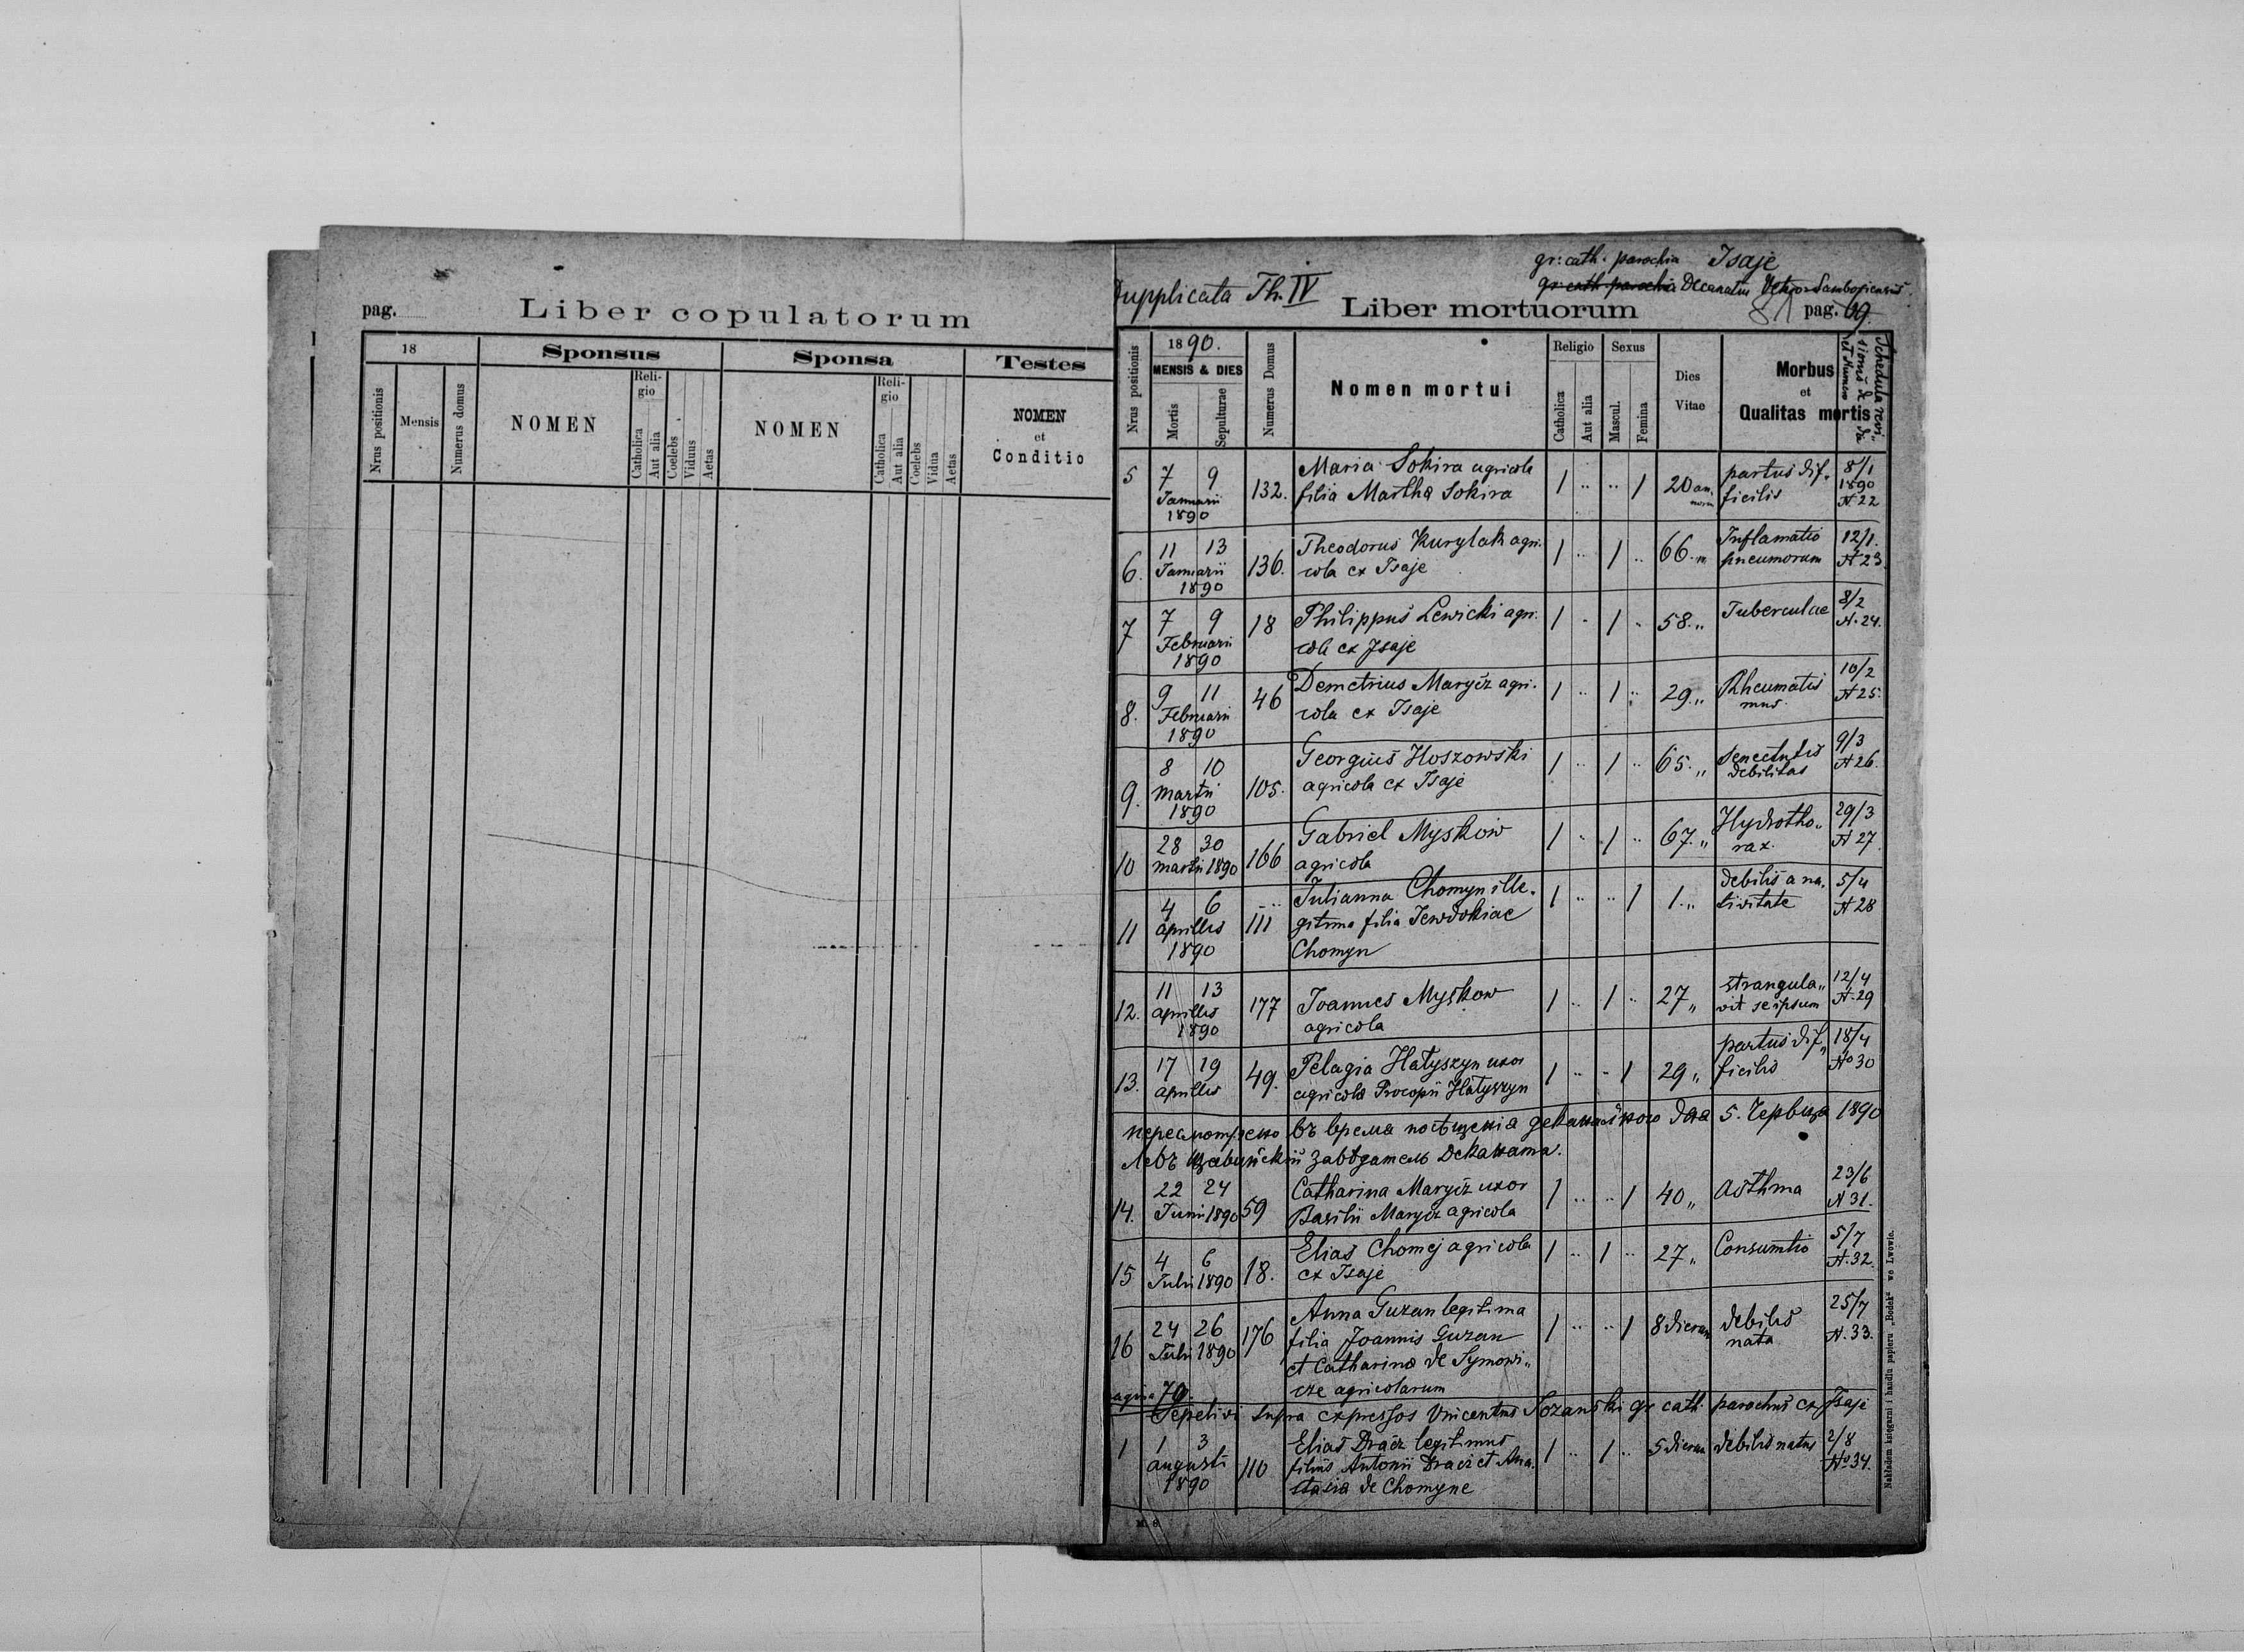 pag.
Liber copulatorum
18
Sponsus
Sponsa
Testes
Nrus positionis
Mensis
Numerus domus
NOMEN
Reli-
gio
Catholica
Aut alia
Coelebs
Viduus
Aetas
NOMEN
Reli-
gio
Catholica
Aut alia
Coelebs
Vidua
Aetas
NOMEN
et
Conditio
gr: cath. parochia Isaje
gr cath parochia Decanatus
Dupplicata Th. IV
Liber mortuorum
81 pag. 69.
Nrus positionis
1890.
MENSIS & DIES
Mortis
Sepulturae
Numerus Domus
Nomen mortui
Religio
Catholica
Aut alia
Sexus
Mascul.
Femina
Dies
Vitae
Morbus
et
Qualitas mortis
5 7 9 132. Maria Sokira agricola 1 .. .. 1 20 an. partus dif- 8/1
Januarii filia Martha Sokira ficilis 1890
1890 N 22
6. 11 13 136. Theodorus Kurylak agri- 1 .. 1 .. 66. Inflamatio 12/1.
Januarii cola ex Isaje pneumorum N 23
1890
7 7 9 18 Philippus Lewicki agri- 1 .. 1 .. 58. „ Tuberculae 8/2
Februarii cola ex Isaje N. 24.
1890
8. 9 11 46 Demetrius Maryćz agri- 1 .. 1 .. 29. „ Rheumatis 10/2
Februarii cola ex Isaje mus. N 25.
1890
9. 8 10 105. Georgius Hoszowski 1 .. 1 .. 65. „ Senectutis 9/3
Martii agricola ex Isaje debilitas N 26.
1890
10 28 30 166 Gabriel Myskow 1 .. 1 .. 67. „ Hydrotho„ 29/3
Martii 1890 agricola rax. N 27
11 4 6 111 Julianna Chomyn ille- 1 .. .. 1 1. „ debilis a na- 5/4
aprillis gitima filia Jewdokiae tivitate N 28
1890 Chomyn
12. 11 13 177 Joannes Myskow 1 .. 1 .. 27 „ strangula„ 12/4
aprillis agricola vit seipsum N. 29
1890
13. 17 19 49. Pelagia Hatyszyn uxor 1 .. .. 1 29 „ partus dif„ 18/4
aprillis agricola Procopii Hatyszyn ficilis No 30
пересмотрено въ время посѣщенія деканального дня 5. Червця 1890
Левъ завѣдатель деканата.
14. 22 24 59 Catharina Maryćz uxor 1 .. .. 1 40 „ Asthma 23/6
Junii 1890 Basilii Maryćz agricola N 31.
15 4 6 18. Elias Chomej agricola 1 .. 1 .. 27 „ Consumtio 5/7
Julii 1890 ex Isaje N. 32.
16 24 26 176 Anna Guzan legitima 1 .. .. 1 8 dierum debilis 25/7
Julii 1890 filia Joannis Guzan nata N. 33.
et Catharina de Symowi„
cze agricolarum
pagina 70.
Sepelivi supra expressos Vincentius Sozański gr cath. parochus ex Isaje
1 1 3 110 Elias Dracz legitimus 1 .. 1 .. 5 dierum debilis natus 2/8
augusti filius Antonii Dracz et Ana- No 34.
1890 stasia de Chomyne
M. 8
Nakładem księgarni i handlu papieru „Bodek“ we Lwowie.